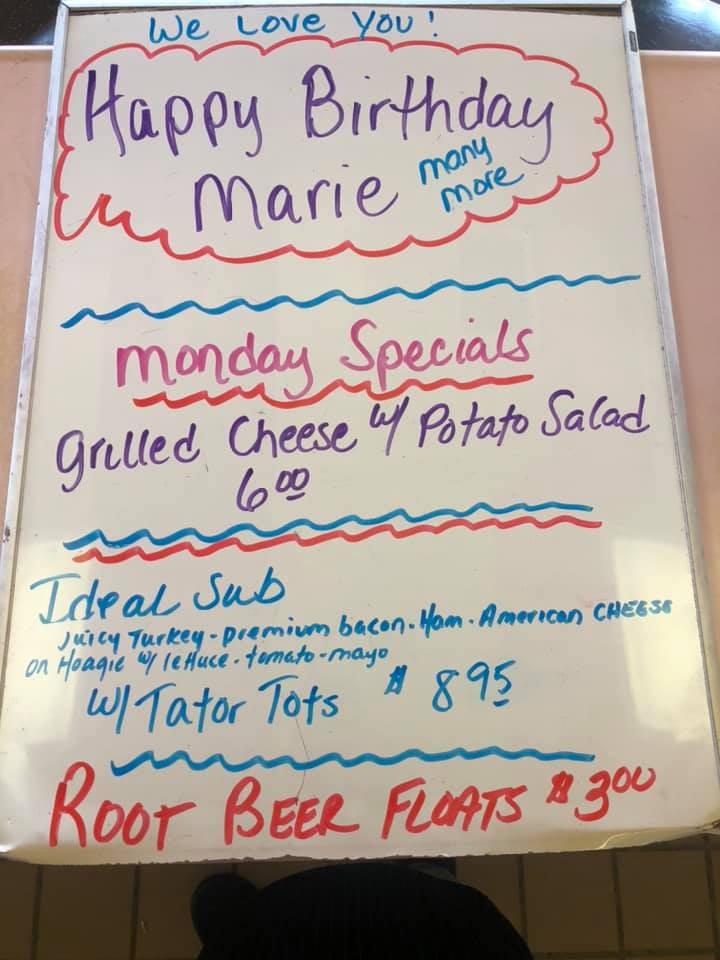 We Love You!
Happy Birthday
Marie many
more
Monday Specials
Grilled Cheese w/ Potato Salad
6.00
Ideal Sub
Juicy Turkey - premium bacon - Ham - American CHEESE
on Hoagie w/ lettuce - tomato - mayo
w/ Tator Tots $ 8.95
ROOT BEER FLOATS $3.00